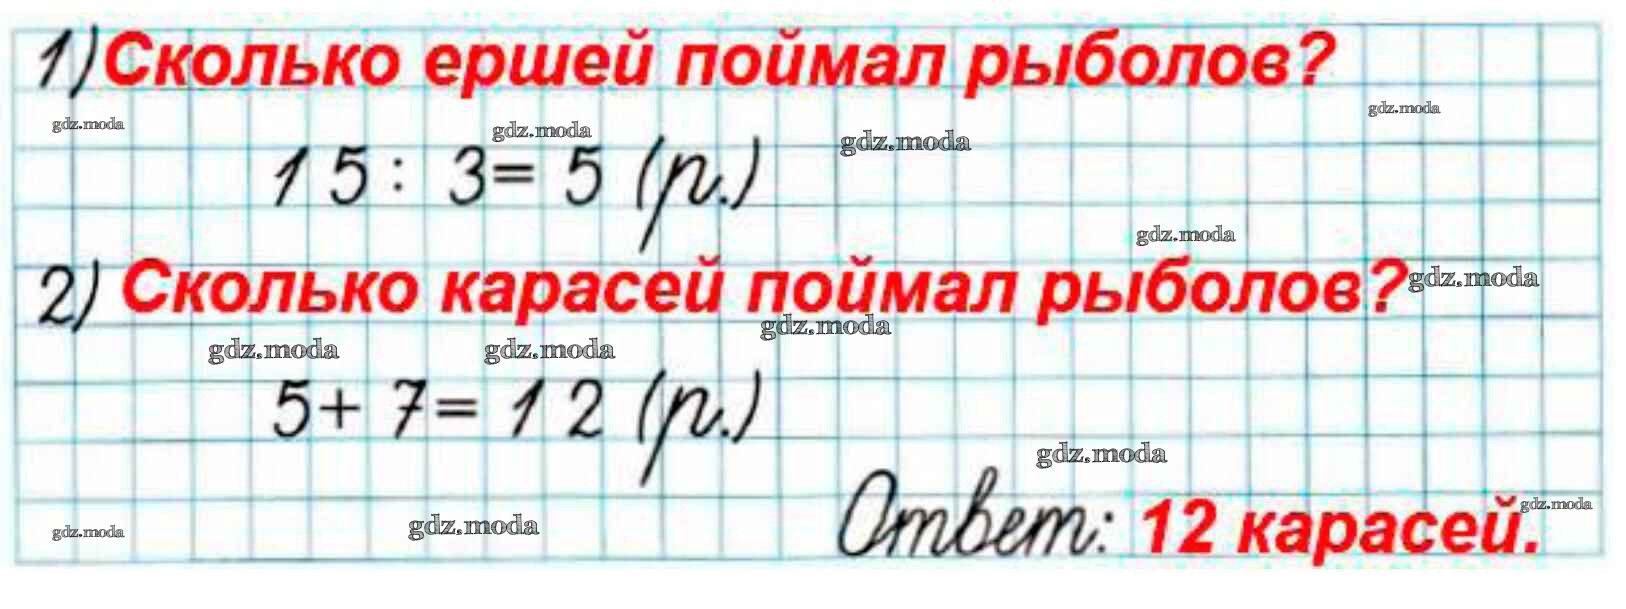 1) Сколько ершей поймал рыболов?
gdz.moda gdz.moda gdz.moda gdz.moda
15 : 3 = 5 (р.)
gdz.moda
2) Сколько карасей поймал рыболов? gdz.moda
gdz.moda gdz.moda gdz.moda
5 + 7 = 12 (р.)
gdz.moda
Ответ: 12 карасей. gdz.moda
gdz.moda gdz.moda